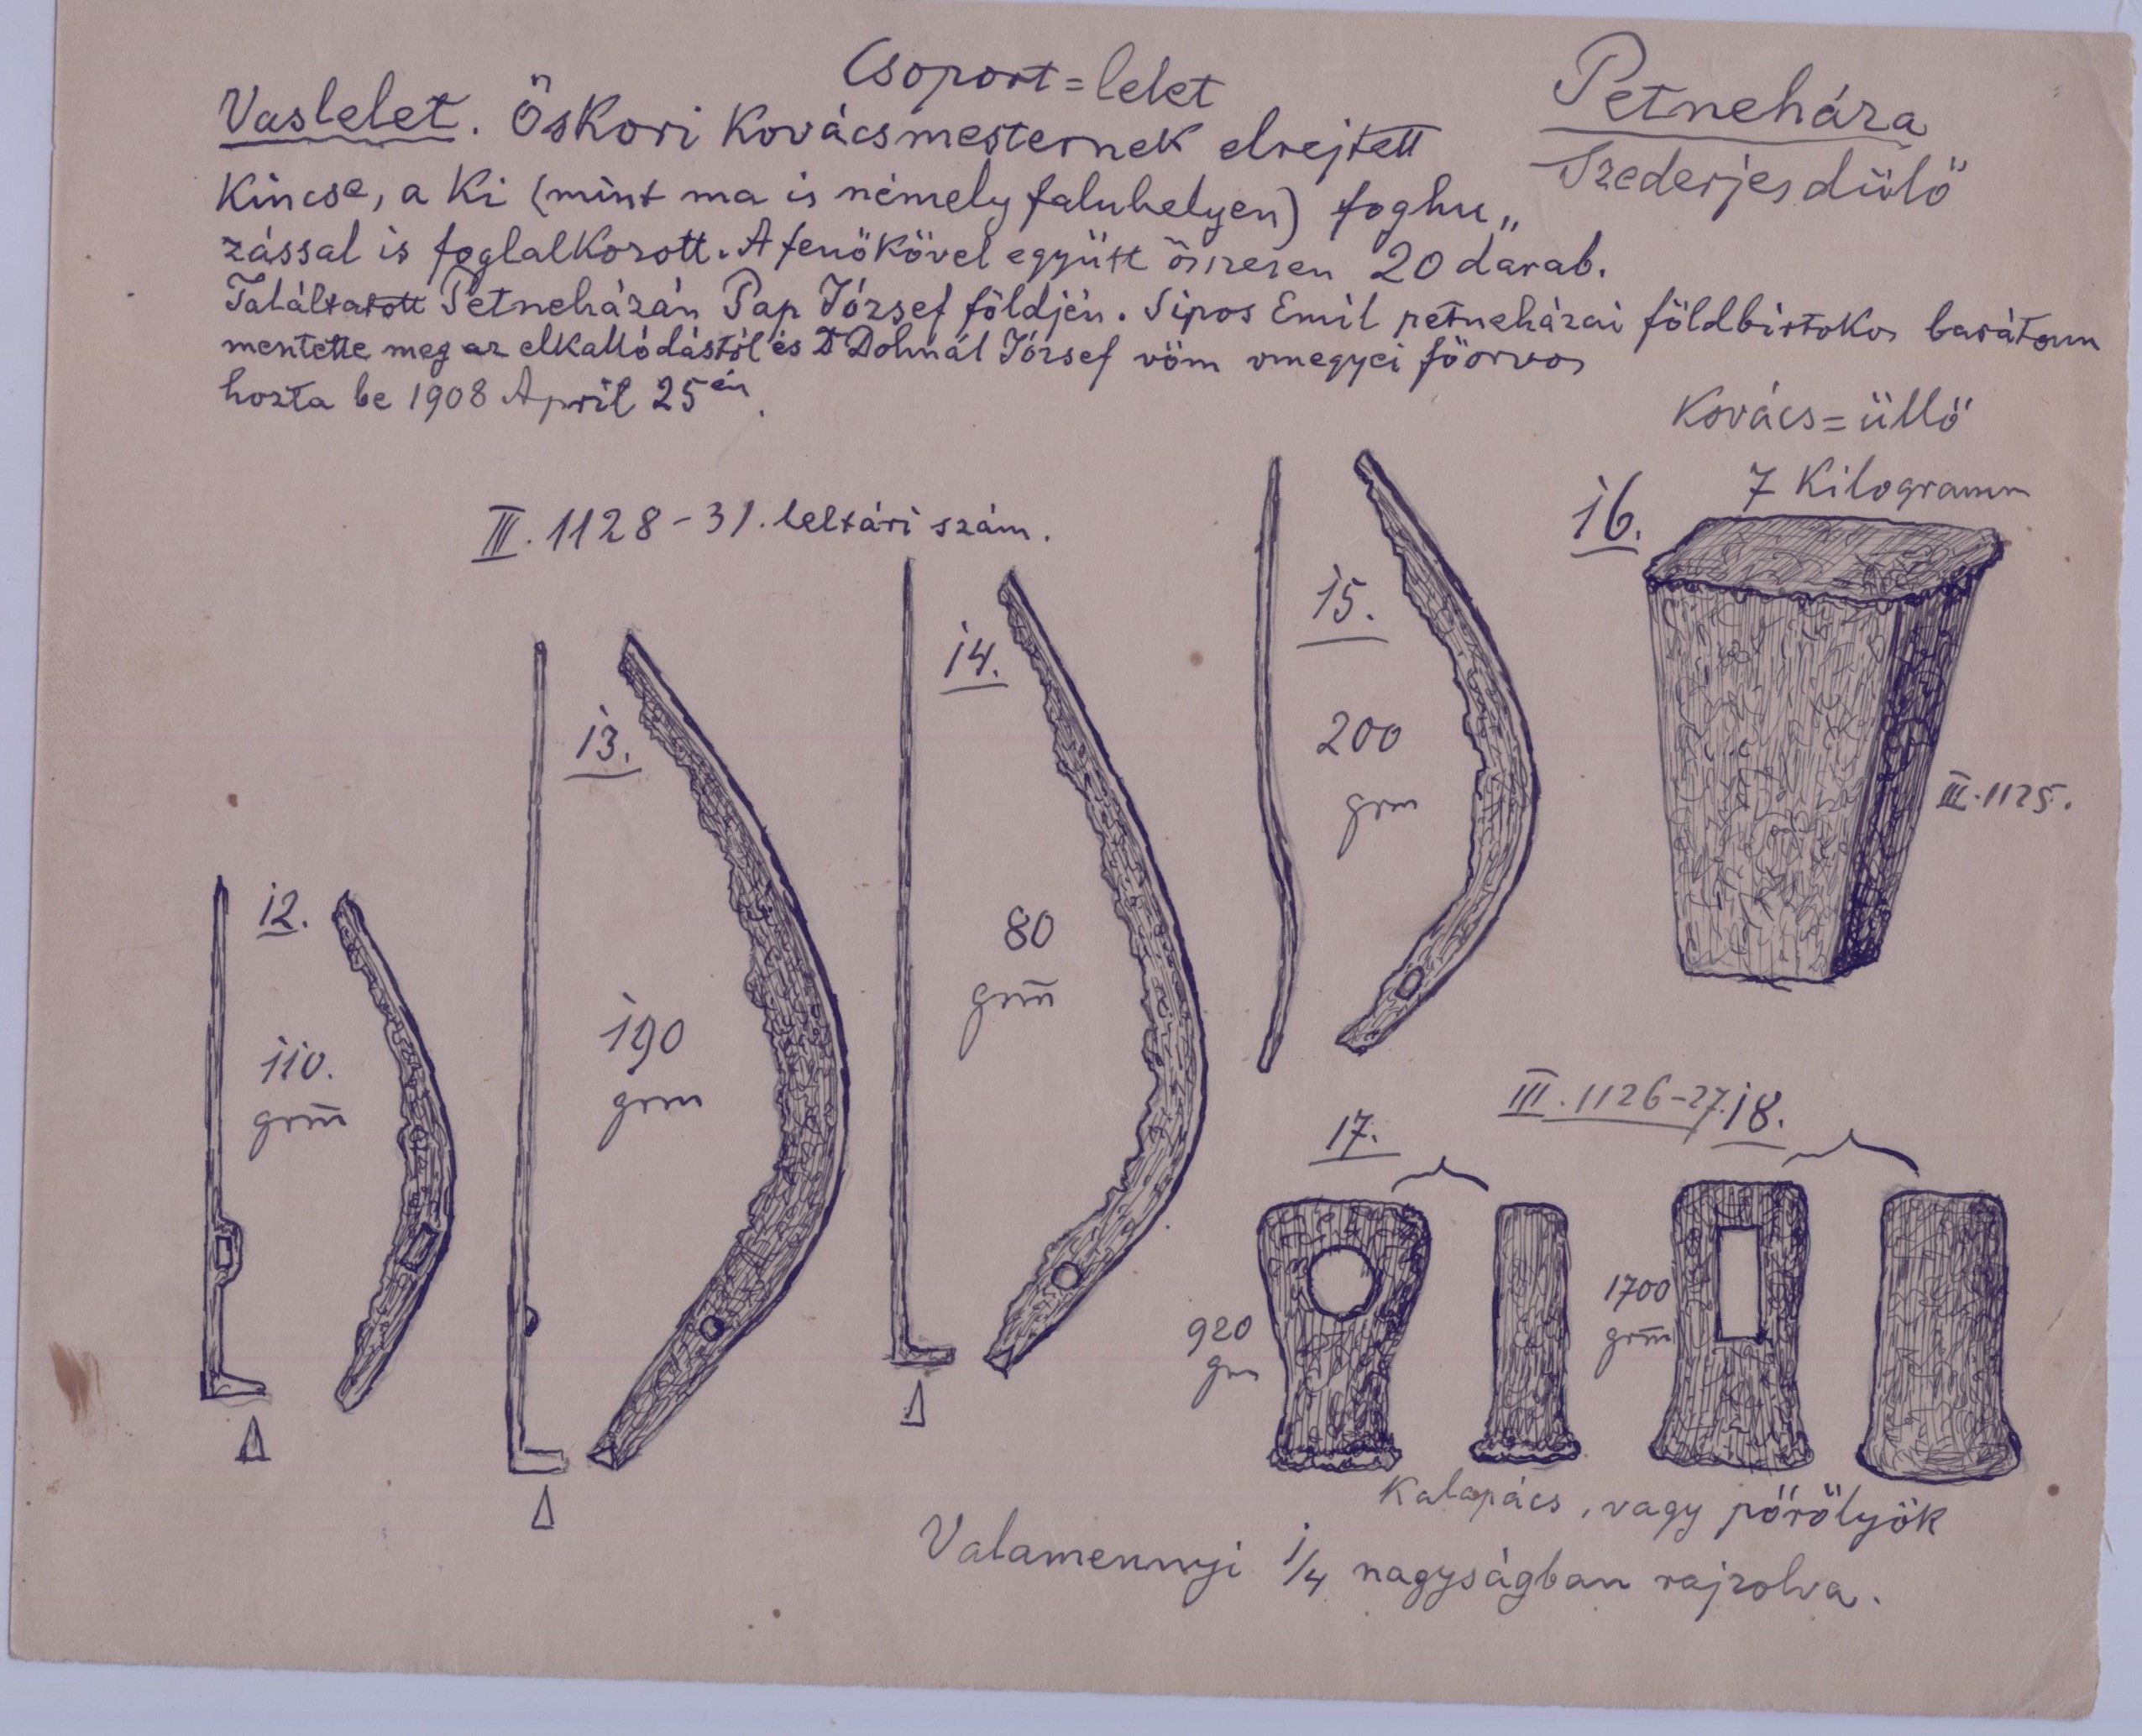 Csoport=lelet
Petneháza
Szederjes dülö
Vaslelet. Őskori Kovácsmesternek elrejtett
Kincse, a Ki (mint ma is némely faluhelyen) foghu„
zással is foglalkozott. A fenökövel együtt összesen 20 darab.
Találtatott Petneházán Pap József földjén. Sipos Emil petneházai földbirtokos barátom
mentette meg az elkallódástól és Dr Dohnál József vöm vmegyei föorvos
hozta be 1908 April 25én.
Kovács=üllö
7 Kilogramm
III. 1128-31. leltári szám.
16.
15.
14.
13.
200
grm
III. 1125.
12.
80
grm̄
190
grm
110.
grm̄
III. 1126-27.
18.
17.
1700
grm̄
920
grm
Kalapács, vagy pörölyök
Valamennyi 1/4 nagyságban rajzolva.